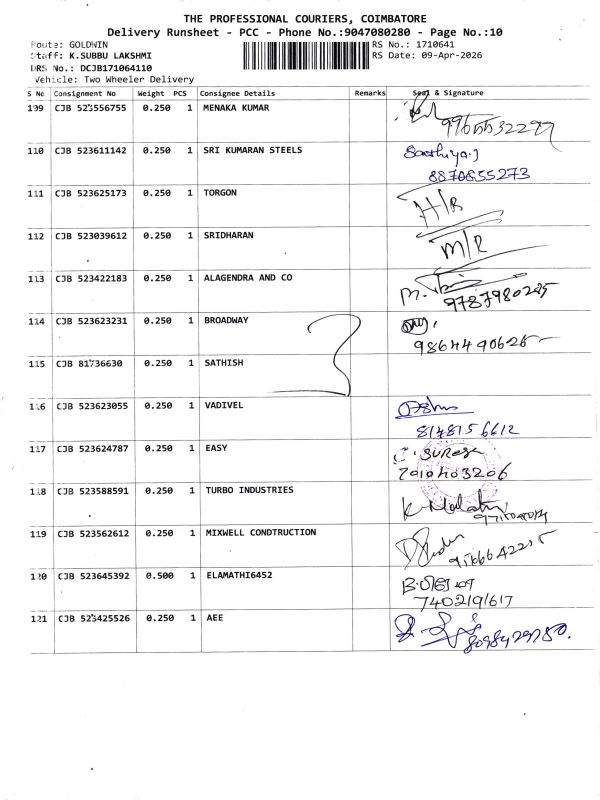 THE PROFESSIONAL COURIERS, COIMBATORE
Delivery Runsheet - PCC - Phone No.:9047080280 - Page No.:10
Route: GOLDWIN
RS No.: 1710641
Staff: K.SUBBU LAKSHMI
RS Date: 09-Apr-2026
DRS No.: DCJB171064110
Vehicle: Two Wheeler Delivery
S No Consignment No Weight PCS Consignee Details Remarks Seal & Signature
109 CJB 523556755 0.250 1 MENAKA KUMAR
9965532299
110 CJB 523611142 0.250 1 SRI KUMARAN STEELS Sathiya.J
8870855273
111 CJB 523625173 0.250 1 TORGON H/R
112 CJB 523039612 0.250 1 SRIDHARAN M/R
113 CJB 523422183 0.250 1 ALAGENDRA AND CO
9787980285
114 CJB 523623231 0.250 1 BROADWAY
9864490625
115 CJB 81736630 0.250 1 SATHISH
116 CJB 523623055 0.250 1 VADIVEL
8148156612
117 CJB 523624787 0.250 1 EASY
7010403206
118 CJB 523588591 0.250 1 TURBO INDUSTRIES
119 CJB 523562612 0.250 1 MIXWELL CONDTRUCTION
120 CJB 523645392 0.500 1 ELAMATHI6452
7402191617
121 CJB 523425526 0.250 1 AEE